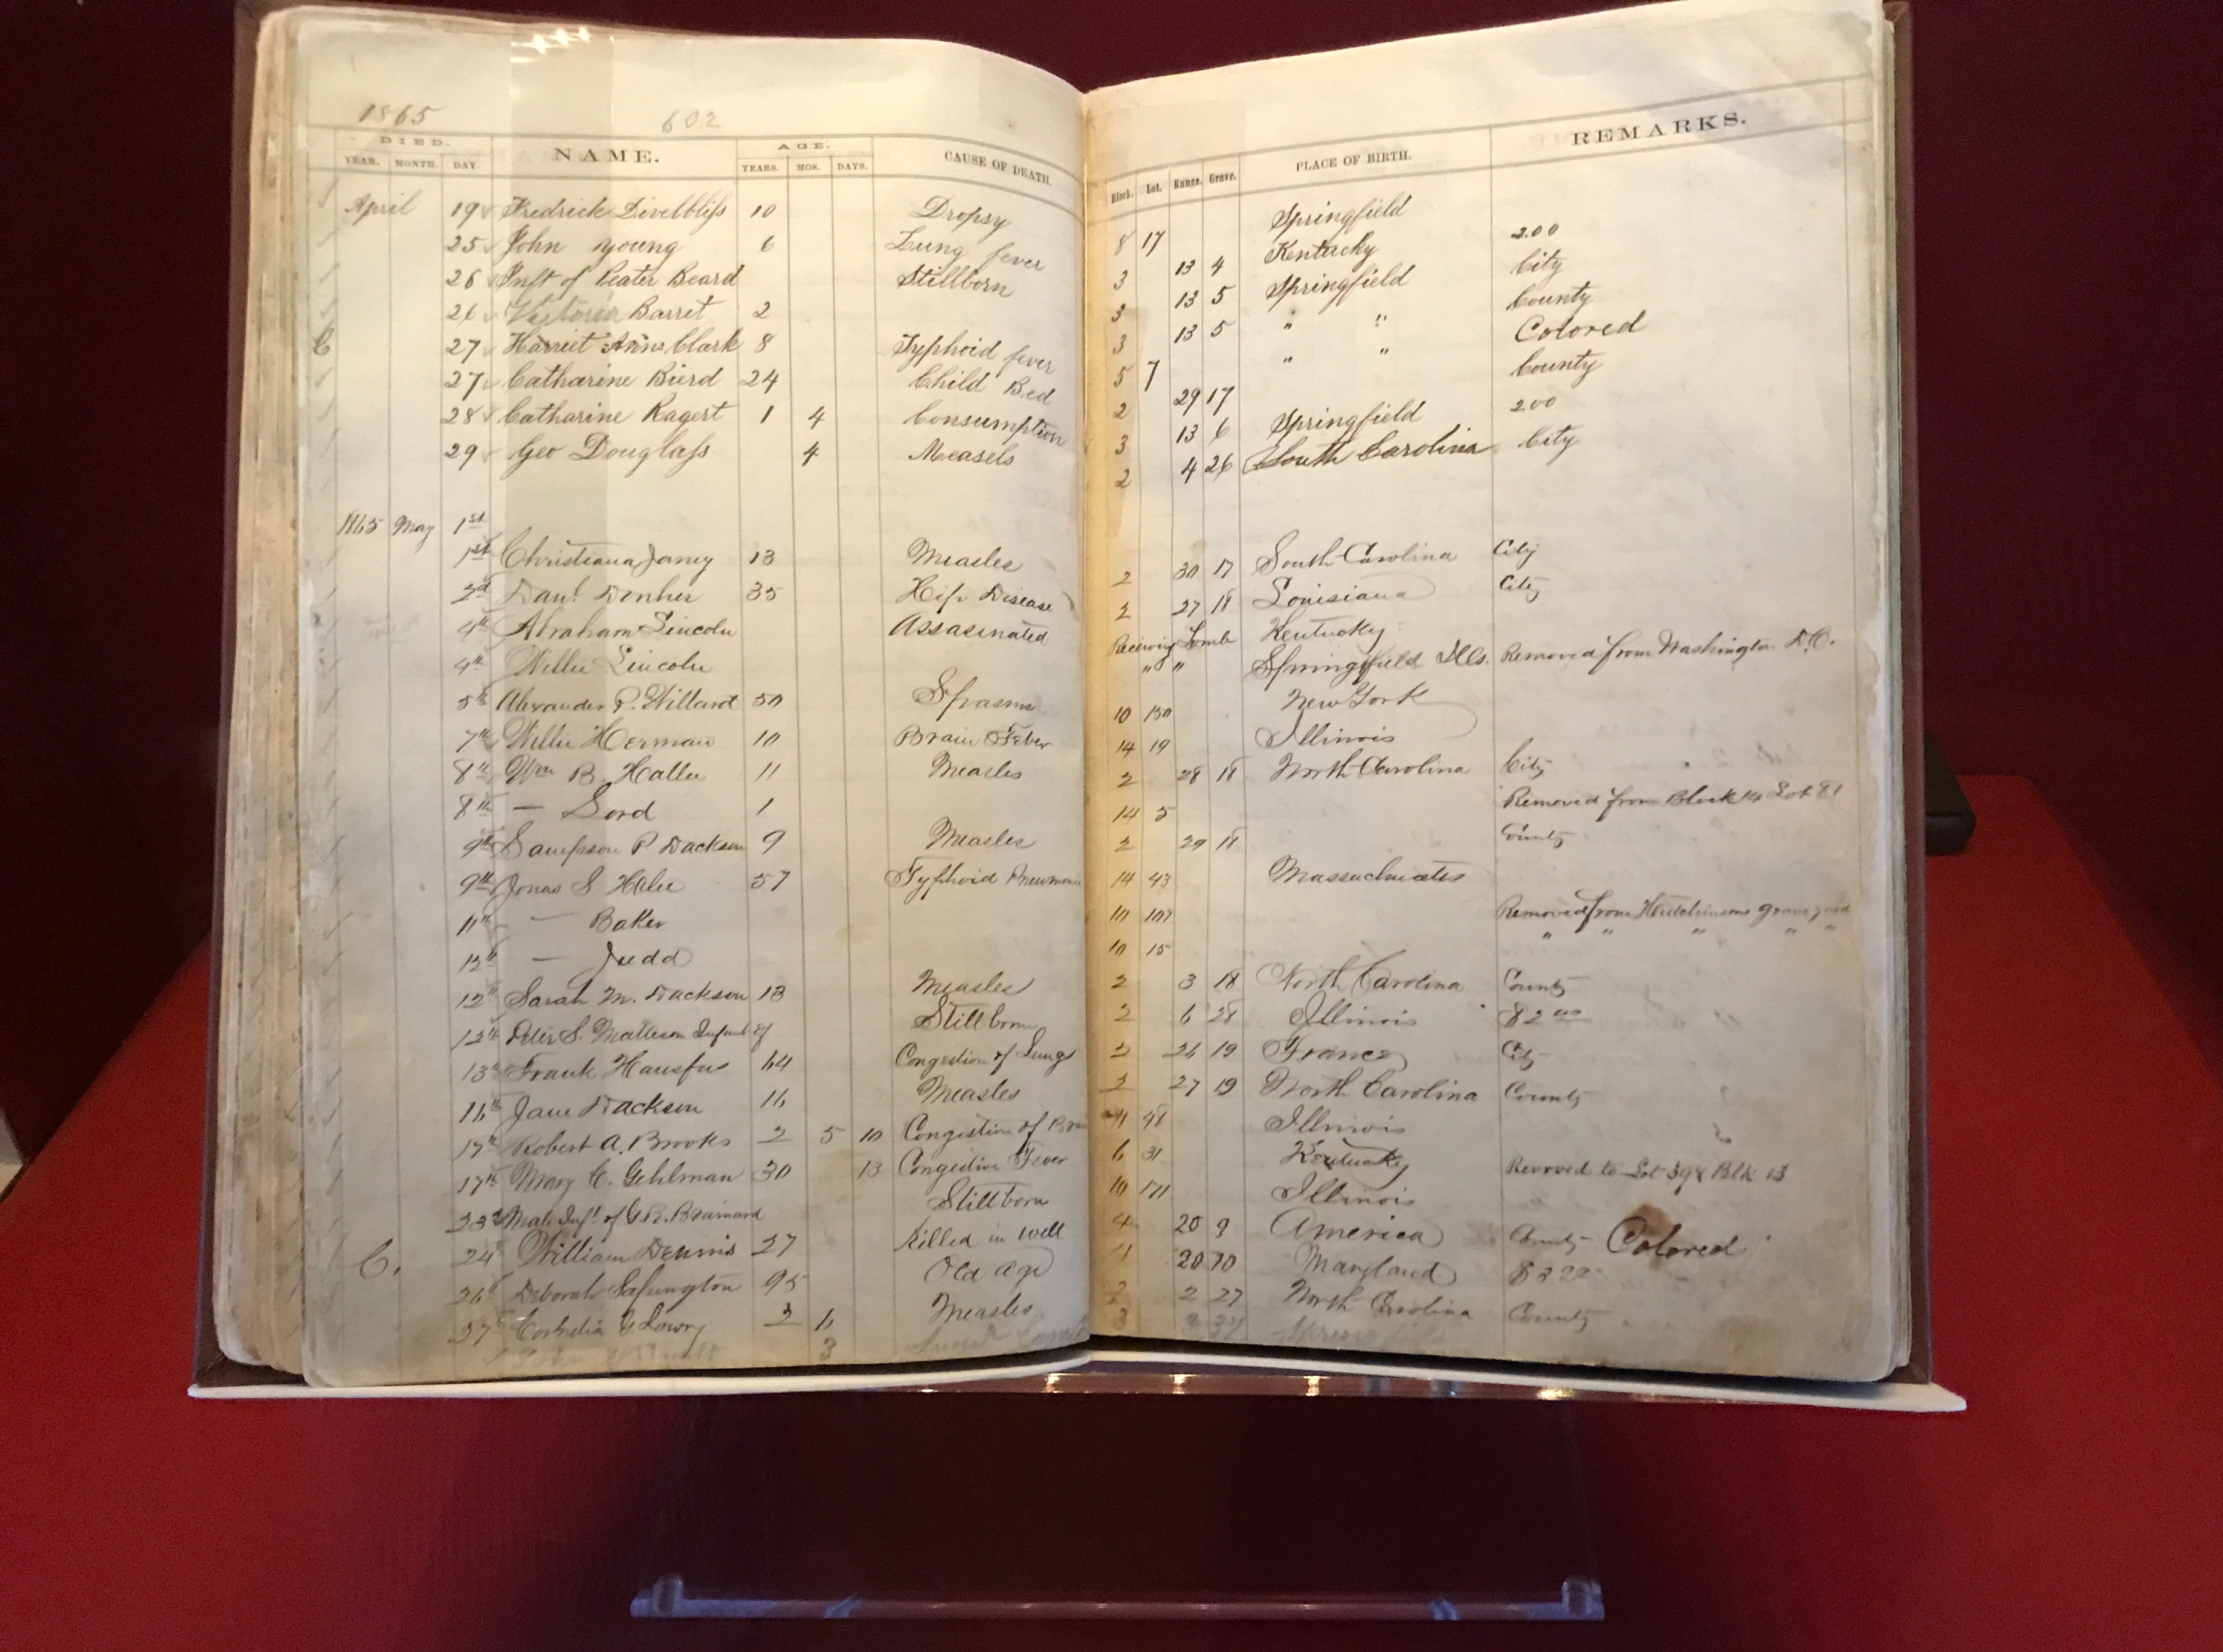 1865 602
DIED. NAME. AGE. CAUSE OF DEATH.
YEAR. MONTH. DAY. YEARS. MOS. DAYS.
Block. Lot. Range. Grave. PLACE OF BIRTH. REMARKS.
April 19 Fredrick Divelbliss 10 Dropsy 8 17 Springfield
25 John Young 6 Lung fever 3 13 4 Kentucky 2.00
26 Inft of Peater Beard Stillborn 3 13 5 Springfield City
26 Victoria Barret 2 3 13 5 " " County
C 27 Harriet Ann Clark 8 Typhoid fever 5 7 " " Colored
27 Catharine Bierd 24 Child Bed 2 29 17 County
28 Catharine Ragert 1 4 Consumption 3 13 6 Springfield 2.00
29 Geo Douglass 4 Measels 2 4 26 South Carolina City
1865 May 1st
1st Christiana Janey 13 Measles 2 30 17 South Carolina City
2d Danl. Donher 35 Hip Disease 2 27 18 Louisiana City
4th Abraham Lincoln Assasinated Receiving Tomb Kentucky
4th Willie Lincoln " " Springfield Ills. Removed from Washington D.C.
5th Alexander P. Willard 50 Spasms 10 130 New York
7th Willie Herman 10 Brain Fever 14 19 Illinois
8th Wm B. Hallee 11 Measles 2 28 18 North Carolina City
8th — Lord 1 14 5 Removed from Block 14 Lot 81
9th Sampson P Dackson 9 Measles 2 29 18 County
9th Jonas S Halee 57 Typhoid Pneumonia 14 43 Massachusetts
11th — Baker 10 107 Removed from Hutchinsons grave yard
12th — Judd 10 15 " " " " "
12th Sarah M. Dackson 13 Measles 2 3 18 North Carolina County
12th Peter S. Matteson Infant of Stillborn 2 6 28 Illinois $2.00
13th Frank Hausfus 64 Congestion of Lungs 2 26 19 France City
16th Jane Dackson 16 Measles 2 27 19 North Carolina County
17th Robert A. Brooks 2 5 10 Congestion of 11 48 Illinois
17th Mary C. Gehlman 30 13 Congestive Fever 6 31 Kentucky Removed to Lot 394 Blk 13
23d Male Inft. of G.R. Brainard Stillborn 10 171 Illinois
C. 24 William Dennis 27 Killed in Well 4 20 9 America County Colored
26 Deborah 95 Old age 20 Maryland
27 Cornelia G Lowry 2 6 Measles 2 2 27 North Carolina County
3